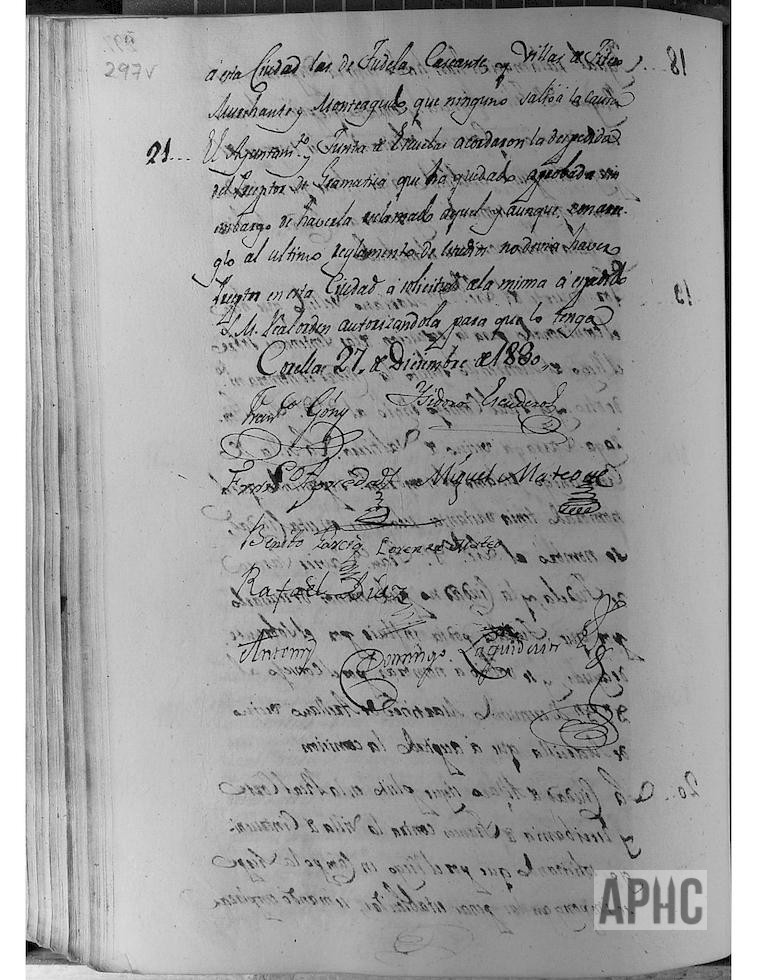 297v
á esta Ciudad las de Tudela, Cascante, y Villas de Fitero
Murchante y Monteagudo, que ninguno saltó á la causa
21... El Ayuntam.to y Junta de Escuelas acordaron la despedida
del Preceptor de Gramatica que ha quedado aprobada sin
embargo de haverla reclamado aquel y aunque, con arre-
glo al ultimo reglamento de estudios no devia haver
Preceptor en esta Ciudad, a solicitud de la misma á expedido
S. M. Real orden autorizandola para que lo tenga
Corella 27, de Diciembre de 1830,
Fran.co Góñy
Ysidoro Escudero
Miguel Mateo
Benito García
Lorenzo
Rafaél Diaz
Antemi
Domingo Laquidain
APHC